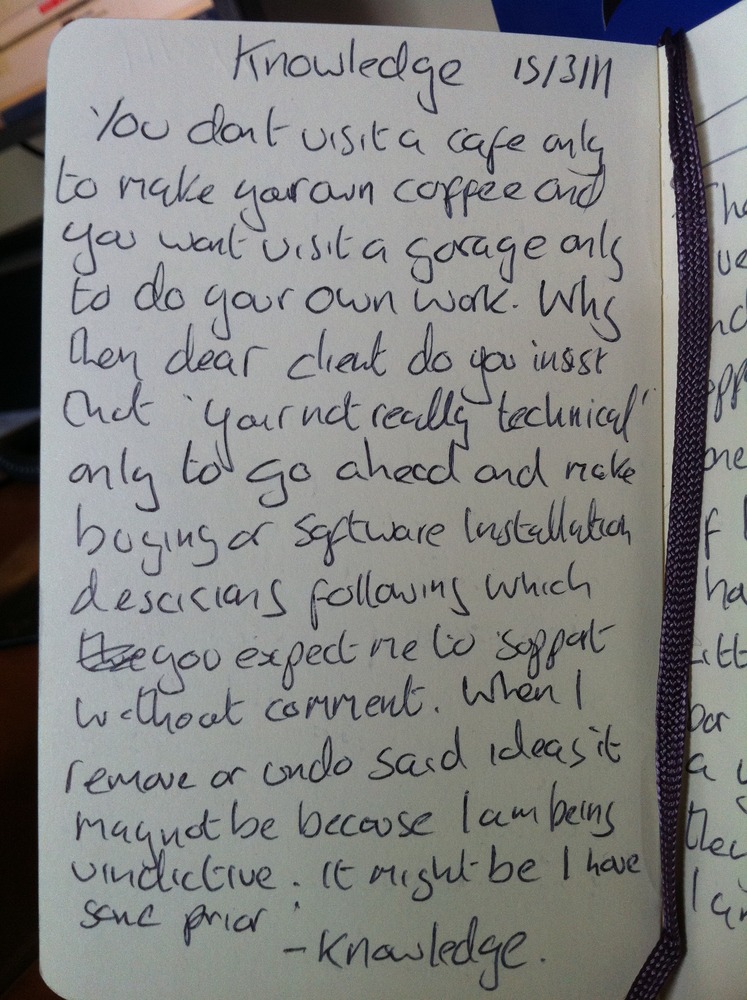 Knowledge 15/3/11
You dont visit a cafe only
to make your own coffee and
you wont visit a garage only
to do your own work. Why
then dear client do you insist
that 'your not really technical'
only to go ahead and make
buying or software installation
descicians following which
you expect me to support
without comment. When I
remove or undo said ideas it
may not be because I am being
vindictive. It might be I have
some prior
- Knowledge.